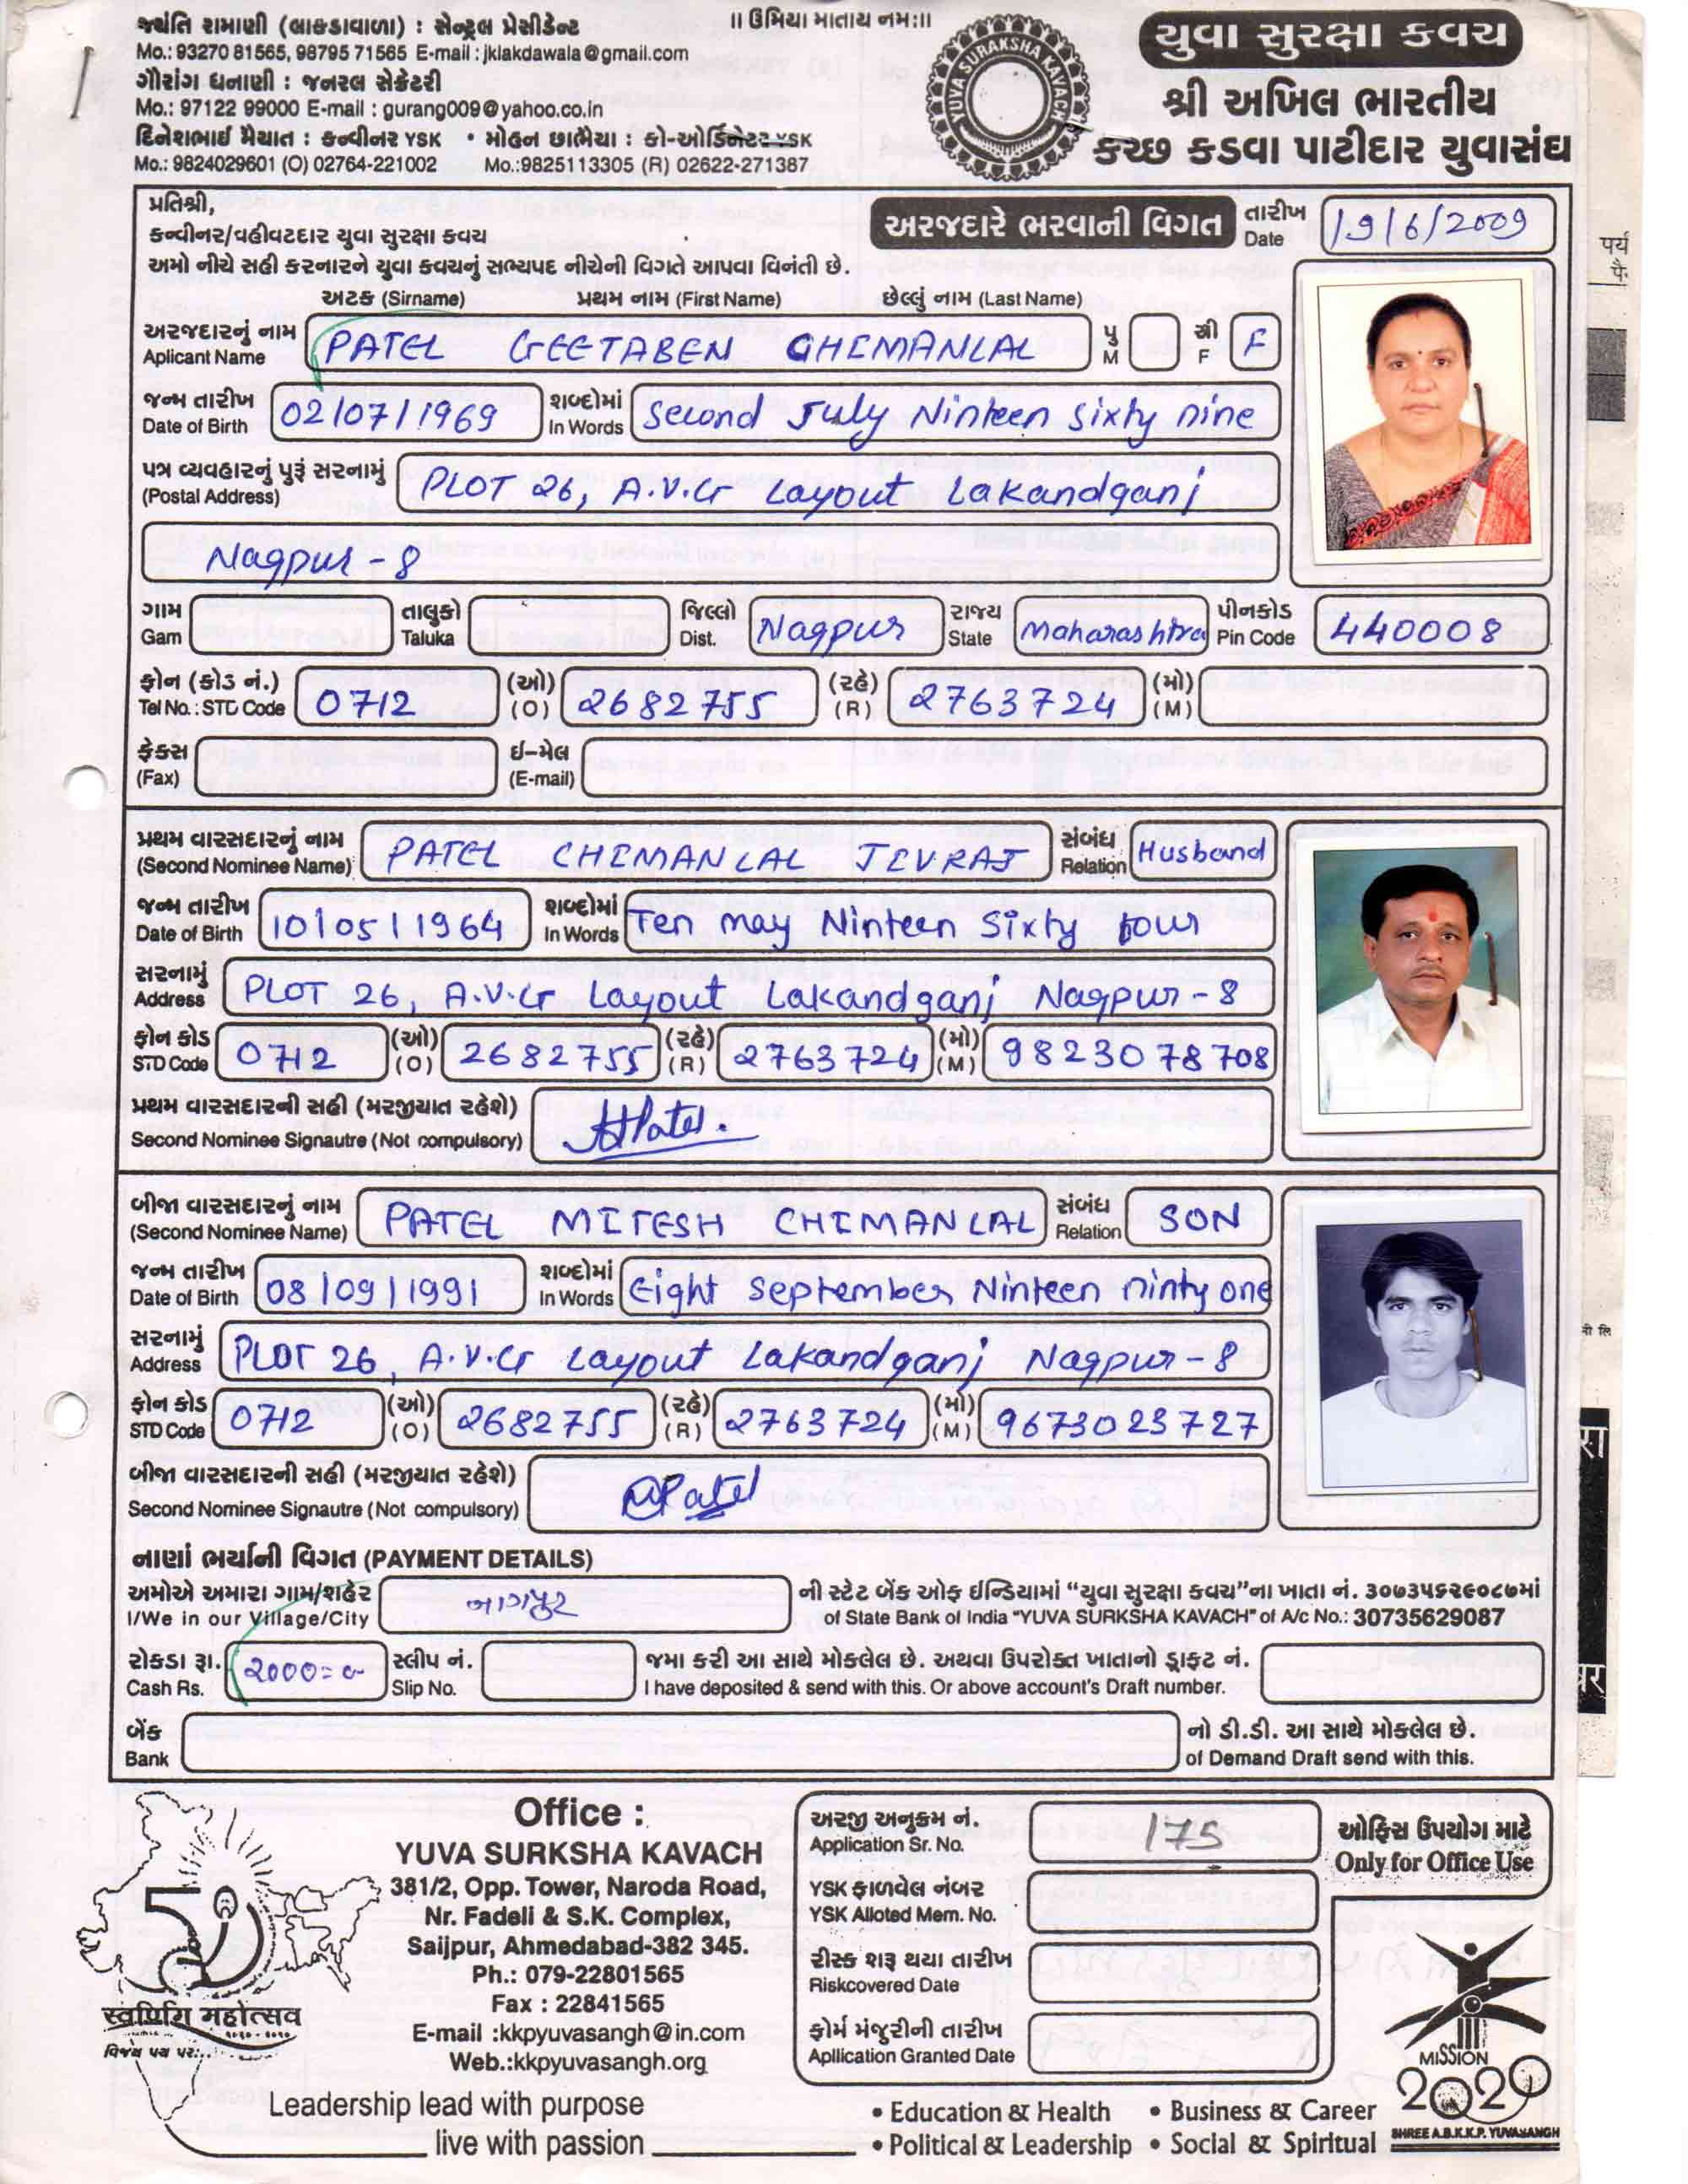 જયંતિ રામાણી (લાકડાવાળા) : સેન્ટ્રલ પ્રેસીડેન્ટ
Mo.: 93270 81565, 98795 71565 E-mail : jklakdawala@gmail.com
ગૌરાંગ ધનાણી : જનરલ સેક્રેટરી
Mo.: 97122 99000 E-mail : gurang009@yahoo.co.in
દિનેશભાઈ મૈયાત : કન્વીનર YSK • મોહન છાભૈયા : કો-ઓર્ડિનેટર YSK
Mo.: 9824029601 (O) 02764-221002 Mo.:9825113305 (R) 02622-271387
॥ ઉમિયા માતાય નમઃ॥
YUVA SURAKSHA KAVACH
યુવા સુરક્ષા કવચ
શ્રી અખિલ ભારતીય
કચ્છ કડવા પાટીદાર યુવાસંઘ
પ્રતિશ્રી,
કન્વીનર/વહીવટદાર યુવા સુરક્ષા કવચ
અરજદારે ભરવાની વિગત
તારીખ
Date 19/6/2009
અમો નીચે સહી કરનારને યુવા કવચનું સભ્યપદ નીચેની વિગતે આપવા વિનંતી છે.
અટક (Sirname) પ્રથમ નામ (First Name) છેલ્લું નામ (Last Name)
અરજદારનું નામ
Aplicant Name PATEL GEETABEN CHIMANLAL પુ M સ્ત્રી F F
જન્મ તારીખ
Date of Birth 02/07/1969 શબ્દોમાં In Words Second July Ninteen Sixty nine
પત્ર વ્યવહારનું પુરૂં સરનામું
(Postal Address) PLOT 26, A.V.G Layout Lakandganj
Nagpur - 8
ગામ Gam તાલુકો Taluka જિલ્લો Dist. Nagpur રાજ્ય State Maharashtra પીનકોડ Pin Code 440008
ફોન (કોડ નં.)
Tel No.: STD Code 0712 (ઓ) (O) 2682755 (રહે) (R) 2763724 (મો) (M)
ફેક્સ (Fax) ઈ-મેલ (E-mail)
પ્રથમ વારસદારનું નામ
(Second Nominee Name) PATEL CHIMANLAL JIVRAJ સંબંધ Relation Husband
જન્મ તારીખ
Date of Birth 10/05/1964 શબ્દોમાં In Words Ten may Ninteen Sixty four
સરનામું
Address PLOT 26, A.V.G Layout Lakandganj Nagpur - 8
ફોન કોડ
STD Code 0712 (ઓ) (O) 2682755 (રહે) (R) 2763724 (મો) (M) 9823078708
પ્રથમ વારસદારની સહી (મરજીયાત રહેશે)
Second Nominee Signautre (Not compulsory)
બીજા વારસદારનું નામ
(Second Nominee Name) PATEL MITESH CHIMANLAL સંબંધ Relation SON
જન્મ તારીખ
Date of Birth 08/09/1991 શબ્દોમાં In Words Eight September Ninteen ninty one
સરનામું
Address PLOT 26, A.V.G Layout Lakandganj Nagpur - 8
ફોન કોડ
STD Code 0712 (ઓ) (O) 2682755 (રહે) (R) 2763724 (મો) (M) 9673023727
બીજા વારસદારની સહી (મરજીયાત રહેશે)
Second Nominee Signautre (Not compulsory)
નાણાં ભર્યાની વિગત (PAYMENT DETAILS)
અમોએ અમારા ગામ/શહેર નાગપુર ની સ્ટેટ બેંક ઓફ ઈન્ડિયામાં "યુવા સુરક્ષા કવચ"ના ખાતા નં. ૩૦૭૩૫૬૨૯૦૮૭માં
I/We in our Village/City of State Bank of India "YUVA SURKSHA KAVACH" of A/c No.: 30735629087
રોકડા રૂા. ૨૦૦૦=૦૦ સ્લીપ નં. જમા કરી આ સાથે મોકલેલ છે. અથવા ઉપરોક્ત ખાતાનો ડ્રાફ્ટ નં.
Cash Rs. Slip No. I have deposited & send with this. Or above account's Draft number.
બેંક નો ડી.ડી. આ સાથે મોકલેલ છે.
Bank of Demand Draft send with this.
Office :
YUVA SURKSHA KAVACH
381/2, Opp. Tower, Naroda Road,
Nr. Fadeli & S.K. Complex,
Saijpur, Ahmedabad-382 345.
Ph.: 079-22801565
Fax : 22841565
E-mail :kkpyuvasangh@in.com
Web.:kkpyuvasangh.org
અરજી અનુક્રમ નં.
Application Sr. No. 175
ઓફિસ ઉપયોગ માટે
Only for Office Use
YSK ફાળવેલ નંબર
YSK Alloted Mem. No.
રીસ્ક શરૂ થયા તારીખ
Riskcovered Date
ફોર્મ મંજુરીની તારીખ
Apllication Granted Date
50
स्वर्णिम महोत्सव
MISSION
2020
SHREE A.B.K.K.P. YUVASANGH
Leadership lead with purpose
live with passion
• Education & Health • Business & Career
• Political & Leadership • Social & Spiritual